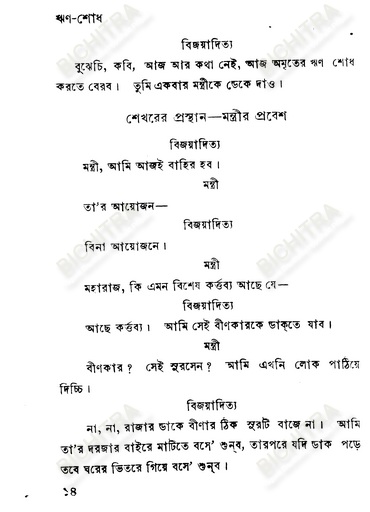 ঋণ-শোধ
বিজয়াদিত্য
বুঝেচি, কবি, আজ আর কথা নেই, আজ অমৃতের ঋণ শোধ
করতে বেরব। তুমি একবার মন্ত্রীকে ডেকে দাও।
শেখরের প্রস্থান—মন্ত্রীর প্রবেশ
বিজয়াদিত্য
মন্ত্রী, আমি আজই বাহির হব।
মন্ত্রী
তা'র আয়োজন—
বিজয়াদিত্য
বিনা আয়োজনে।
মন্ত্রী
মহারাজ, কি এমন বিশেষ কর্ত্তব্য আছে যে—
বিজয়াদিত্য
আছে কর্ত্তব্য। আমি সেই বীণকারকে ডাক্‌তে যাব।
মন্ত্রী
বীণকার? সেই সুরসেন? আমি এখনি লোক পাঠিয়ে
দিচ্চি।
বিজয়াদিত্য
না, না, রাজার ডাকে বীণার ঠিক সুরটি বাজে না। আমি
তা'র দরজার বাইরে মাটিতে বসে' শুন্‌ব, তারপরে যদি ডাক পড়ে
তবে ঘরের ভিতরে গিয়ে বসে' শুন্‌ব।
১৪
BICHITRA
BICHITRA
BICHITRA
BICHITRA
BICHITRA
BICHITRA